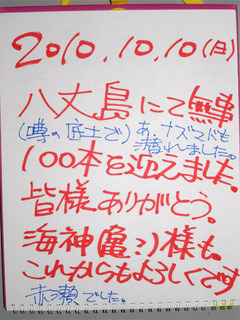 2010.10.10(日)
八丈島にて無事
(噂の底土で)あ、ナズマドも
潜れました。
100本を迎えました。
皆様ありがとう。
海神(亀?)様も。
これからもよろしくです
赤瀬でした。